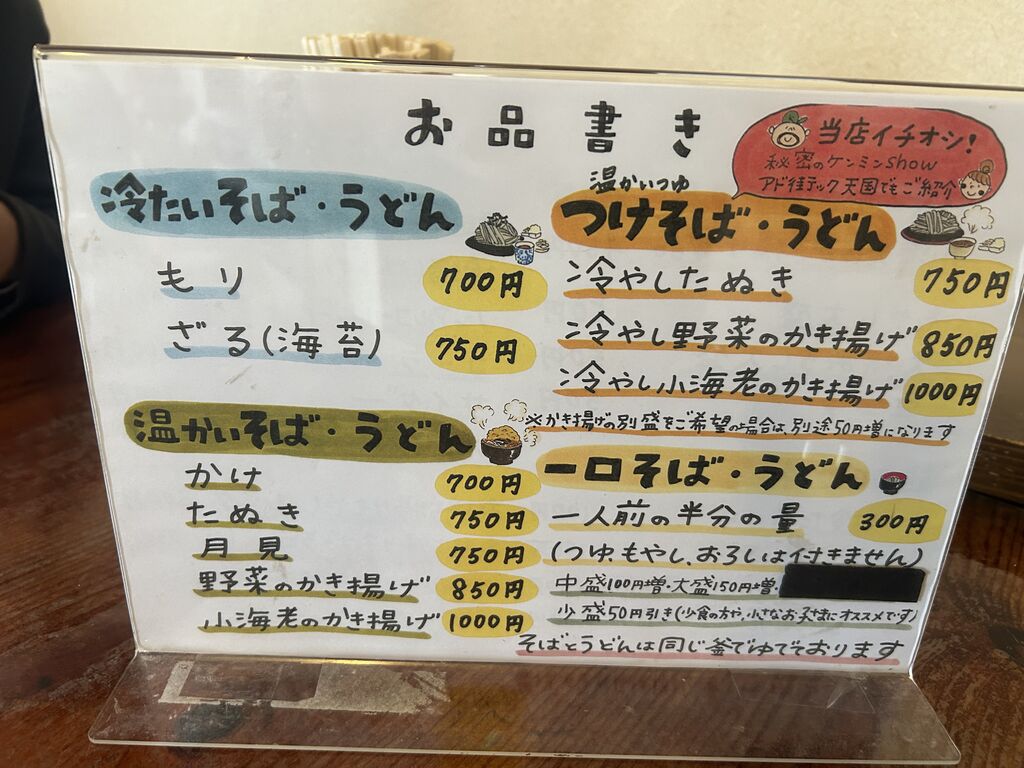 お品書き
当店イチオシ!
秘密のケンミンshow
アド街テック天国でもご紹介
冷たいそば・うどん
もり 700円
ざる(海苔) 750円
温かいそば・うどん
かけ 700円
たぬき 750円
月見 750円
野菜のかき揚げ 850円
小海老のかき揚げ 1000円
温かいつゆ
つけそば・うどん
冷やしたぬき 750円
冷やし野菜のかき揚げ 850円
冷やし小海老のかき揚げ 1000円
※かき揚げの別盛をご希望の場合は、別途50円増になります
一口そば・うどん
一人前の半分の量 300円
(つゆ、もやし、おろしは付きません)
中盛100円増・大盛150円増・
少盛50円引き(少食の方や、小さなお子さまにオススメです)
そばとうどんは同じ釜でゆでております